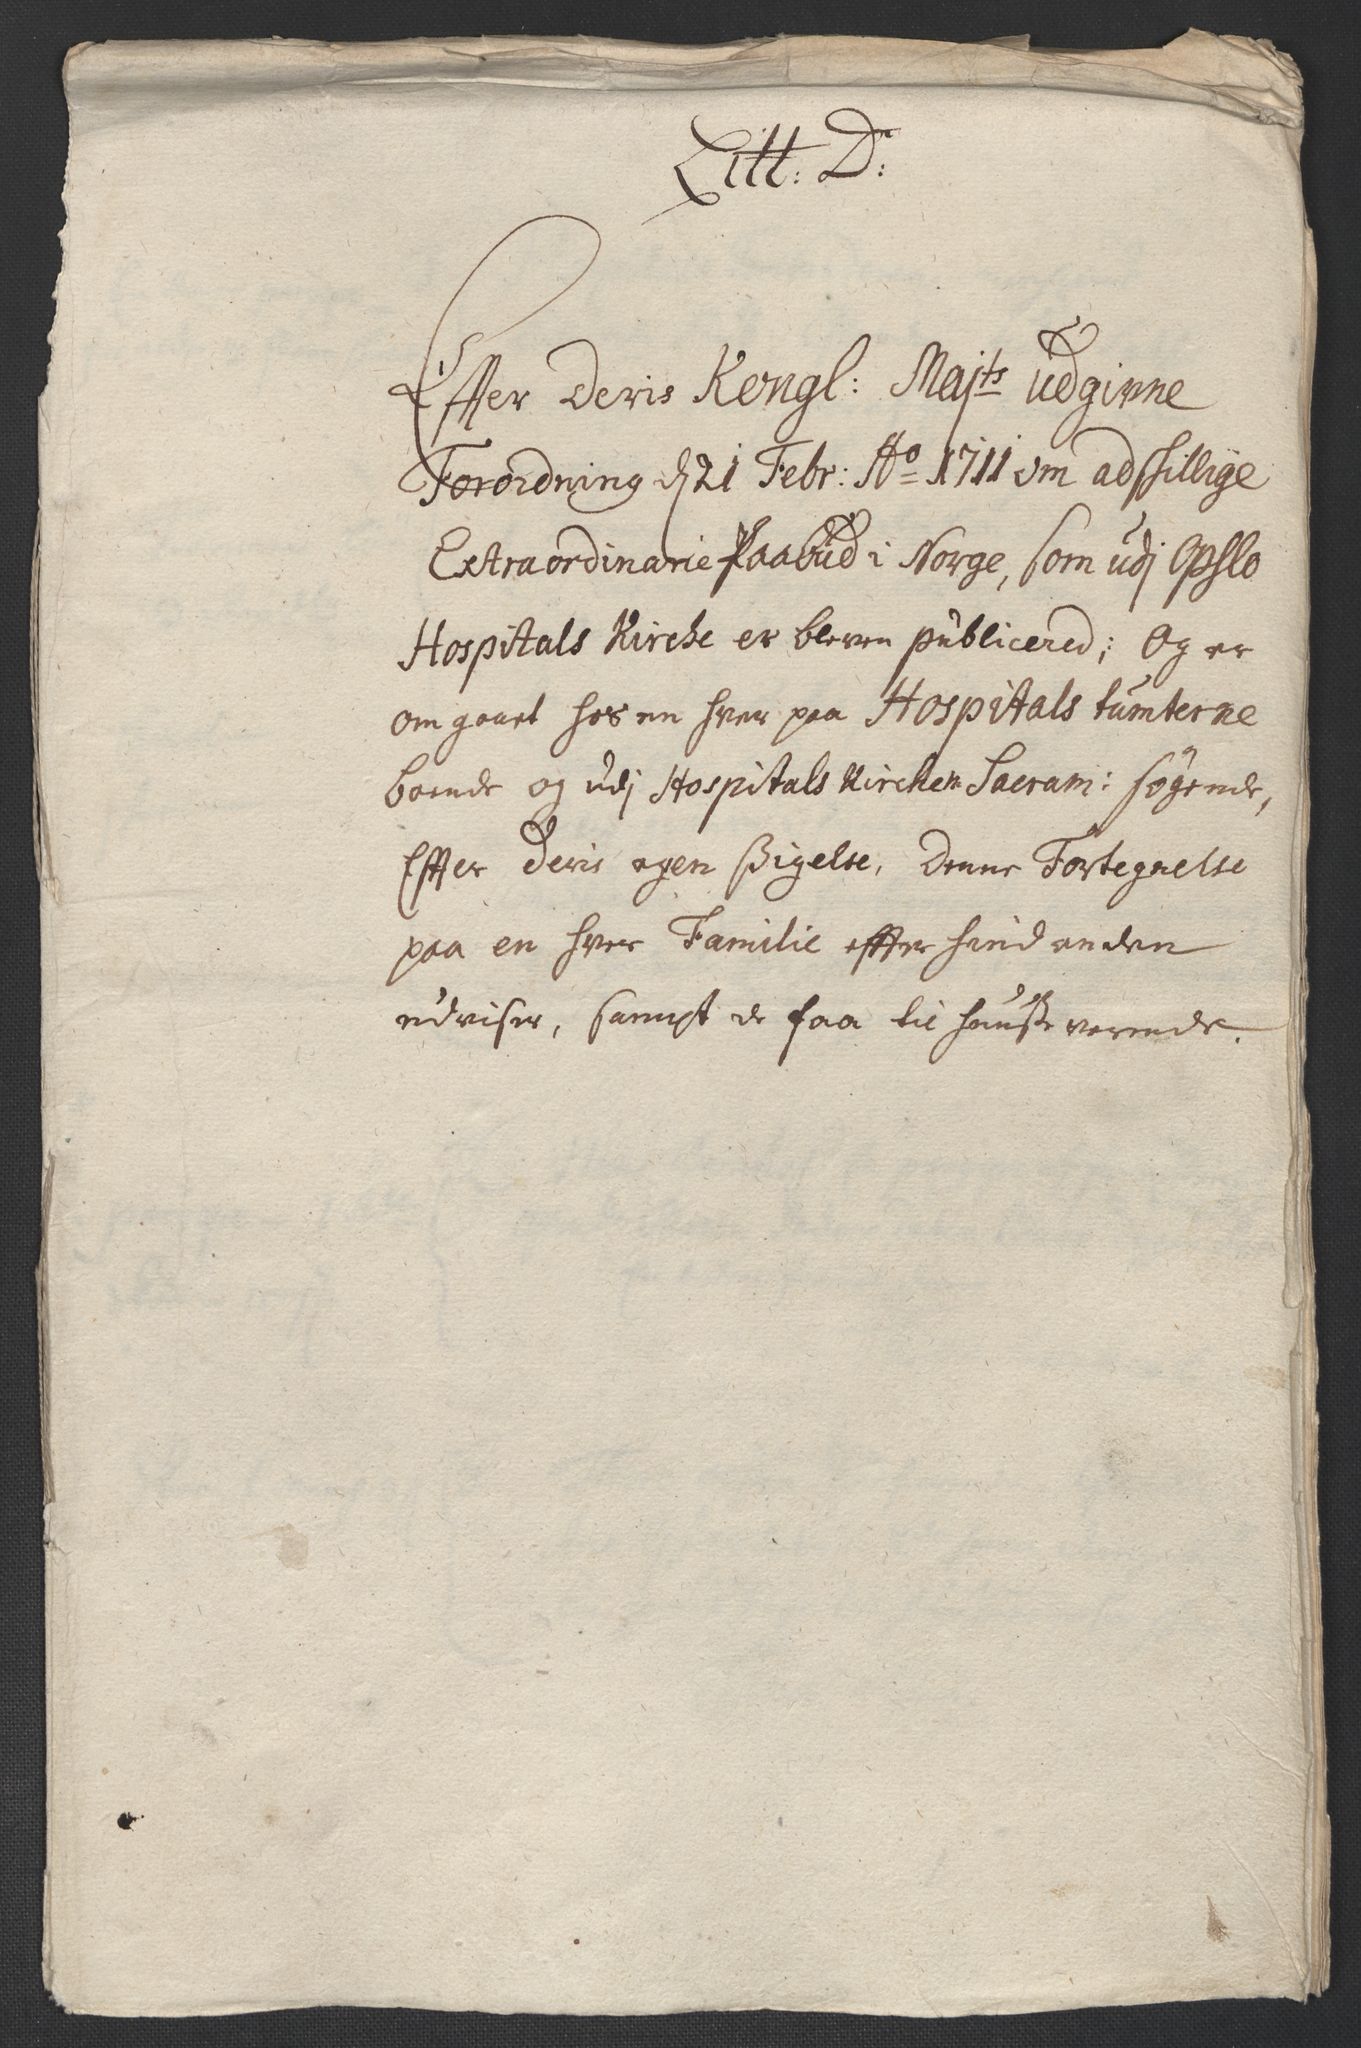 Litt: D:
Effter Deris Kongl: Majts udgivne
Forordning d 21 Febr: Ao 1711 om adskillige
Extraordinarie Paabud i Norge, som udj Opslo
Hospitals Kirche er bleven publicered; Og er
om gaaet hos en hver paa Hospitals tumterne
boende og udj Hospitals Kirchen Sacram: søgende,
Effter Deris egen Sigelse, Denne Fortegnelse
paa en hver Familie effter hind anden
udviser, sampt de faa til huuse verende.